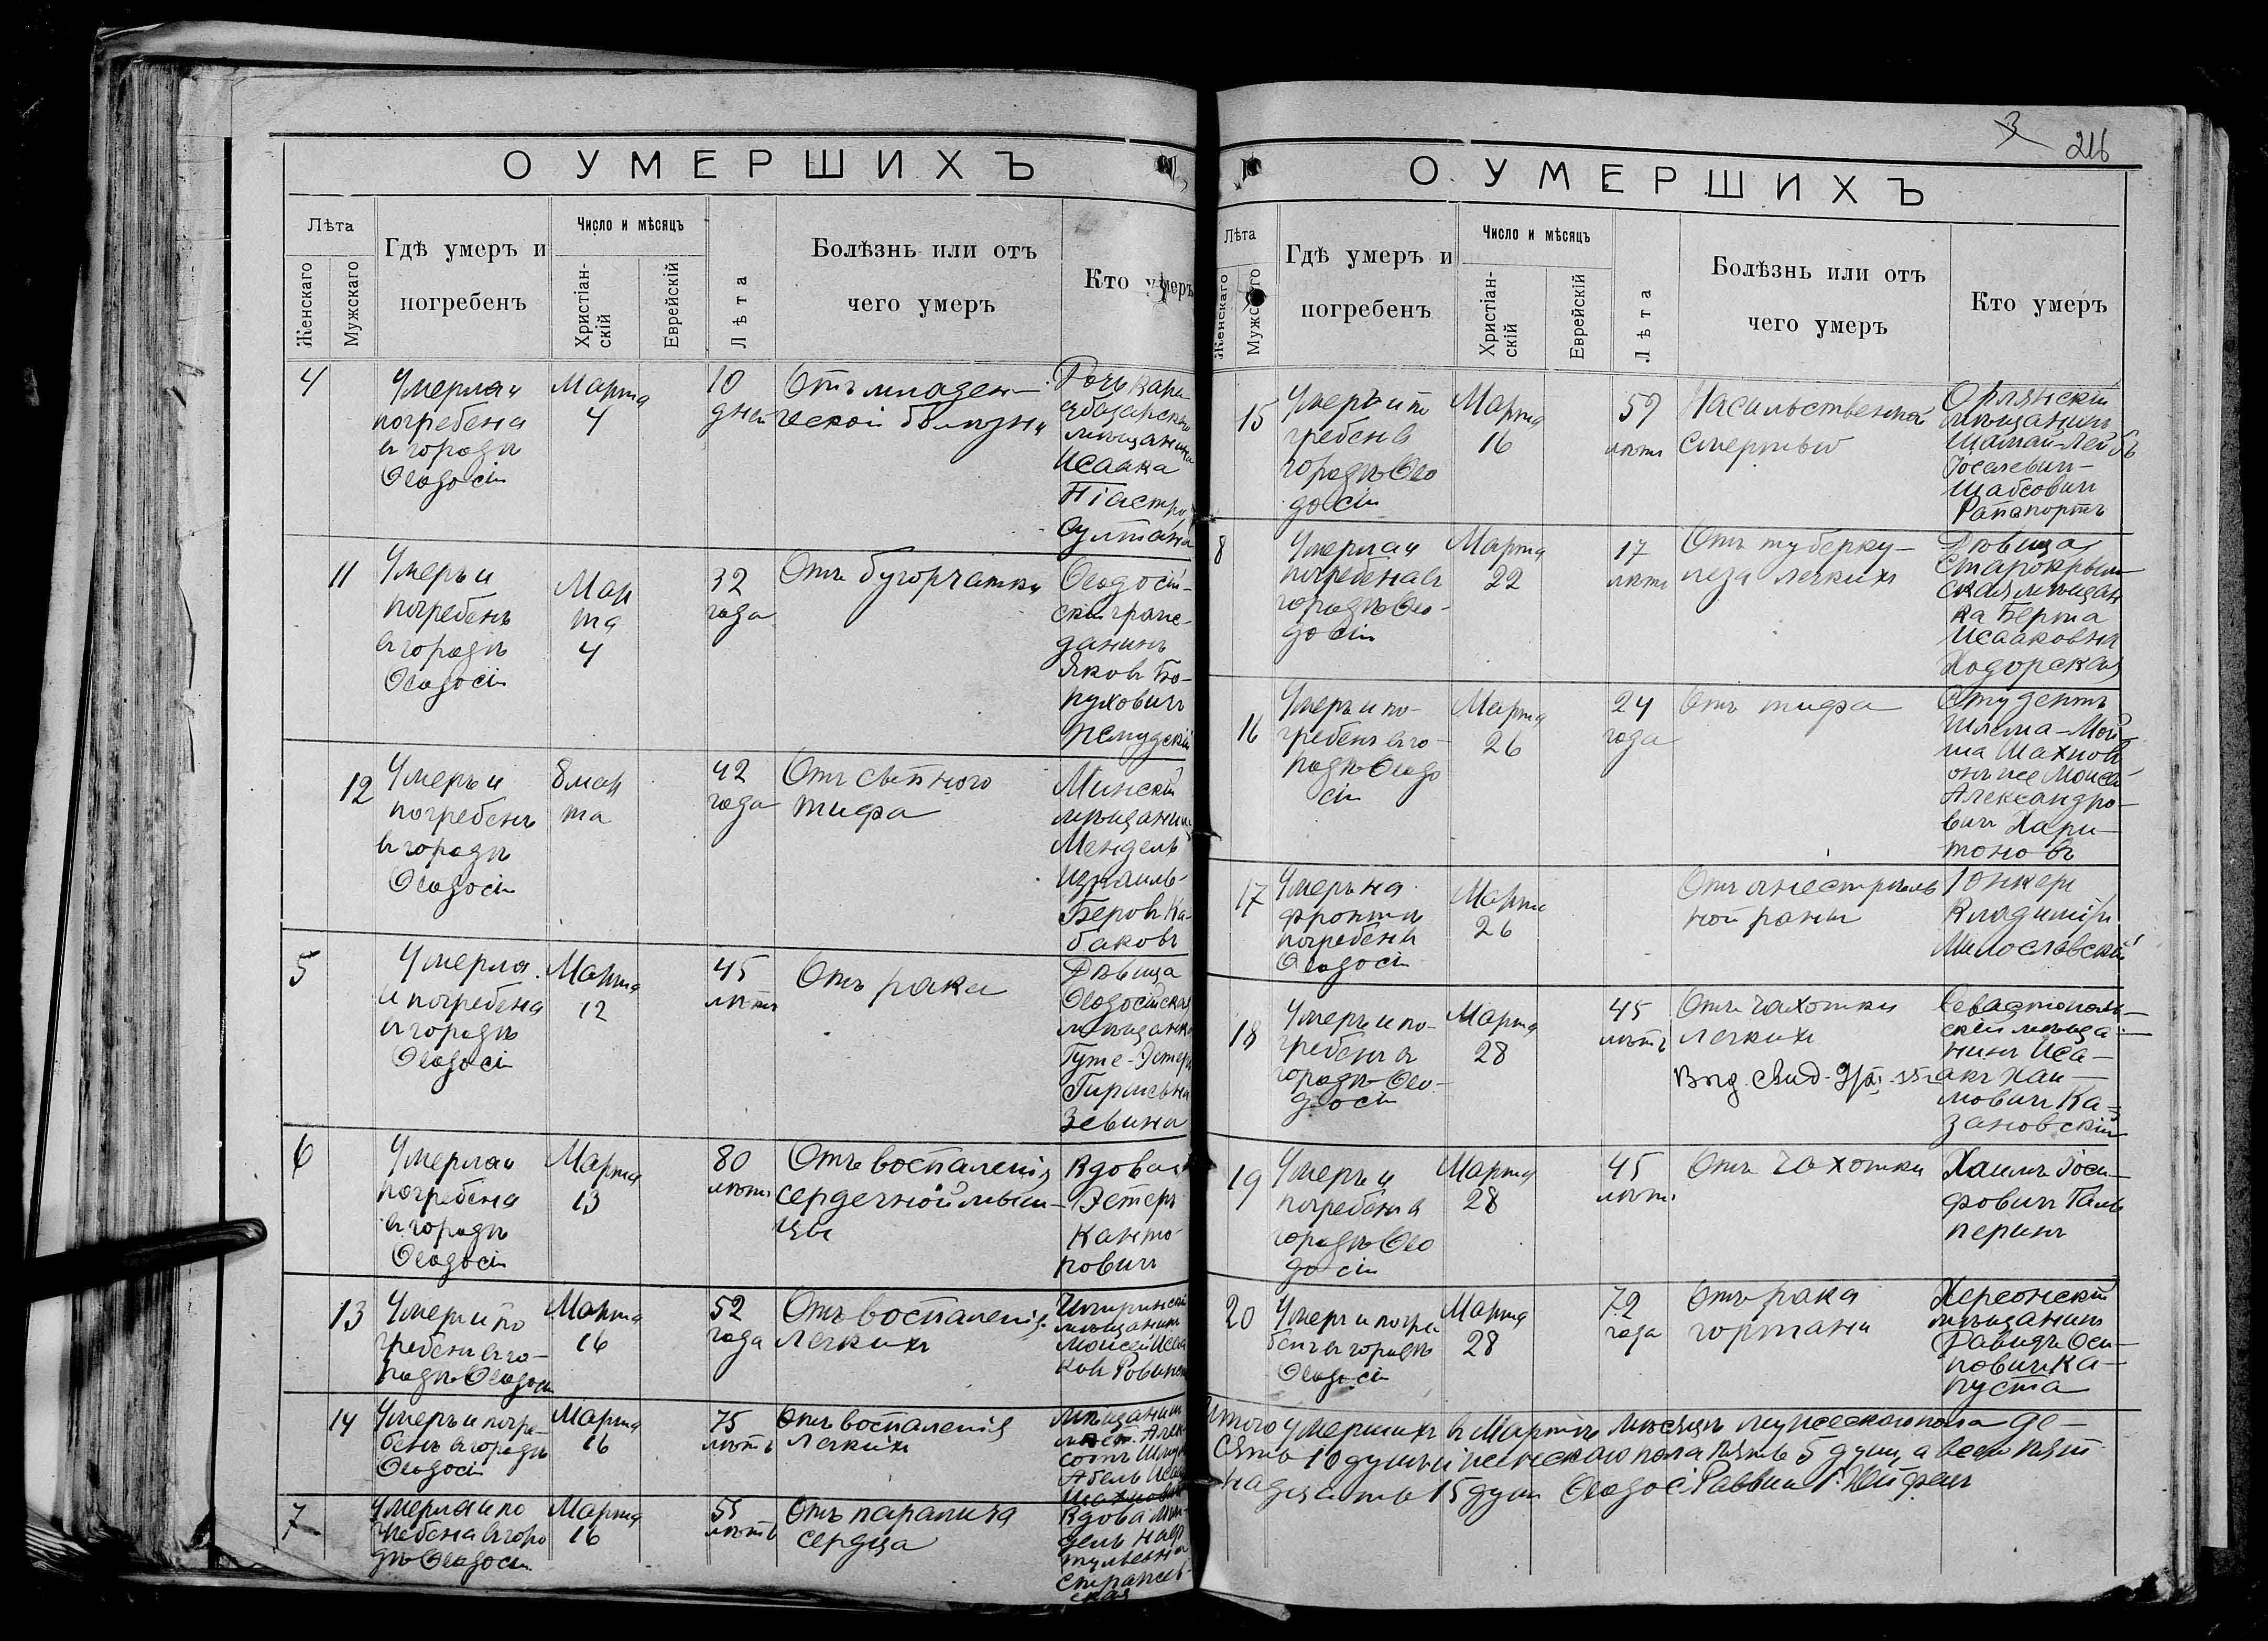 О УМЕРШИХЪ
Лѣта
Женскаго
Мужскаго
Гдѣ умеръ и
погребенъ
Число и мѣсяцъ
Христіан-
скій
Еврейскій
Лѣта
Болѣзнь или отъ
чего умеръ
Кто умеръ
4
Умерла и
погребена
въ городѣ
Ѳеодосіи
Марта
4
10
дней
Отъ младен-
ческой болѣзни
Дочь Кара
субазарскаго
мѣщанина
Исаака
Піастро
Султана
11
Умеръ и
погребенъ
въ городѣ
Ѳеодосіи
Мар
та
4
32
года
Отъ бугорчатки
Ѳеодосій-
скій граж-
данинъ
Яковъ Бо-
руховичъ
12
Умеръ и
погребенъ
въ городѣ
Ѳеодосіи
8 мар
та
42
года
Отъ сыпного
тифа
Минскій
мѣщанинъ
Мендель
Израиль-
Беровъ Ка-
баковъ
5
Умерла
и погребена
въ городѣ
Ѳеодосіи
Марта
12
45
лѣтъ
Отъ рака
Дѣвица
Ѳеодосійская
мѣщанка
Гиршевна
Зевина
6
Умерла и
погребена
въ городѣ
Ѳеодосіи
Марта
13
80
лѣтъ
Отъ воспаленія
сердечной мыш-
цы
Вдова
Эстеръ
Канто-
ровичъ
13
Умеръ и по
гребенъ въ го-
родѣ Ѳеодосіи
Марта
16
52
года
Отъ воспаленія
легкихъ
мѣщанинъ
Моисей Исаа
ковъ
14
Умеръ и погре-
бенъ въ городѣ
Ѳеодосіи
Марта
16
75
лѣтъ
Отъ воспаленія
легкихъ
мѣщанинъ
Абель
7
Умерла и по
гребена въ горо
дѣ Ѳеодосіи
Марта
16
55
лѣтъ
Отъ паралича
сердца
Вдова
3
216
О УМЕРШИХЪ
Лѣта
Женскаго
Мужскаго
Гдѣ умеръ и
погребенъ
Число и мѣсяцъ
Христіан-
скій
Еврейскій
Лѣта
Болѣзнь или отъ
чего умеръ
Кто умеръ
15
Умеръ и по
гребенъ въ
городѣ Ѳео
досіи
Марта
16
59
лѣтъ
Насильственной
смертью
мѣщанинъ
Рапапортъ
8
Умерла и
погребена въ
городѣ Ѳео-
досіи
Марта
22
17
лѣтъ
Отъ туберку-
леза легкихъ
Дѣвица
Старокрым
ская мѣщан
ка Берта
Исааковна
Ходорская
16
Умеръ и по-
гребенъ въ го-
родѣ Ѳеодо
сіи
Марта
26
24
года
Отъ тифа
Студентъ
Шлема-Мой
ша Шахновъ
онъ же Моисей
Александро-
вичъ Хари-
тоновъ
17
Умеръ на
фронтѣ
погребенъ
Ѳеодосіи
Марта
26
Отъ огнестрѣль
ной раны
Юнкеръ
Владиміръ
Милославскій
18
Умеръ и по-
гребенъ въ
городѣ Ѳео-
досіи
Марта
28
45
лѣтъ
Отъ чахотки
легкихъ
Выд. свид.
Севастополь-
скій мѣща-
нинъ Иса-
акъ Хаи-
мовичъ Ка-
зановскій
19
Умеръ и
погребенъ въ
городѣ Ѳео
досіи
Марта
28
45
лѣтъ
Отъ чахотки
Хаимъ Іоси-
фовичъ Галь
перинъ
20
Умеръ и погре
бенъ въ городѣ
Ѳеодосіи
Марта
28
72
года
Отъ рака
гортани
Херсонскій
мѣщанинъ
Давидъ Оси-
повичъ Ка-
пуста
Итого умершихъ въ Мартѣ мѣсяцѣ мужескаго пола де-
сять 10 душъ и женскаго пола пять 5 душъ, а всего пят-
надцать 15 душъ Ѳеодос. Раввинъ